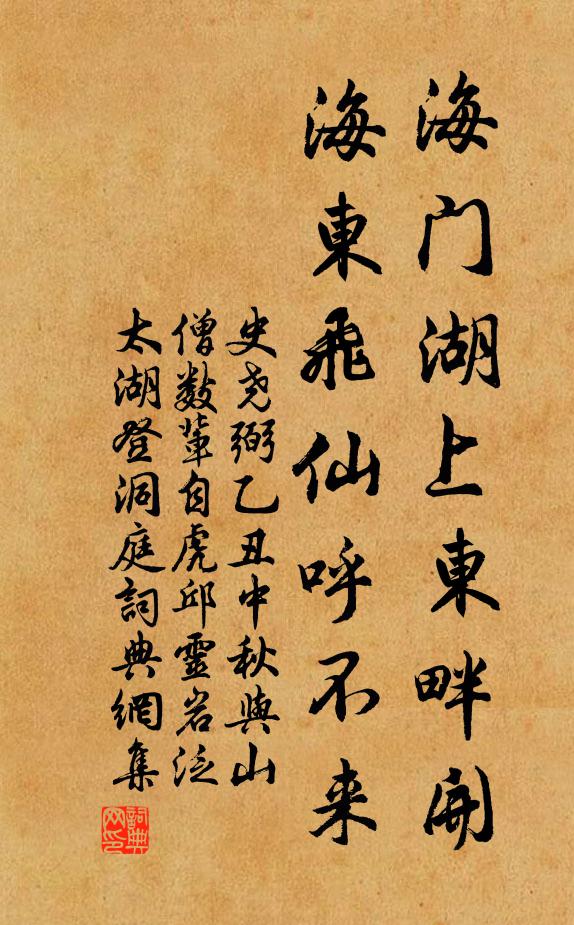 海门湖上東畔開
海東飛仙呼不来
史尧弼乙丑中秋與山
僧數輩自虎邱靈岩泛
太湖登洞庭詞典網集
詞典网印